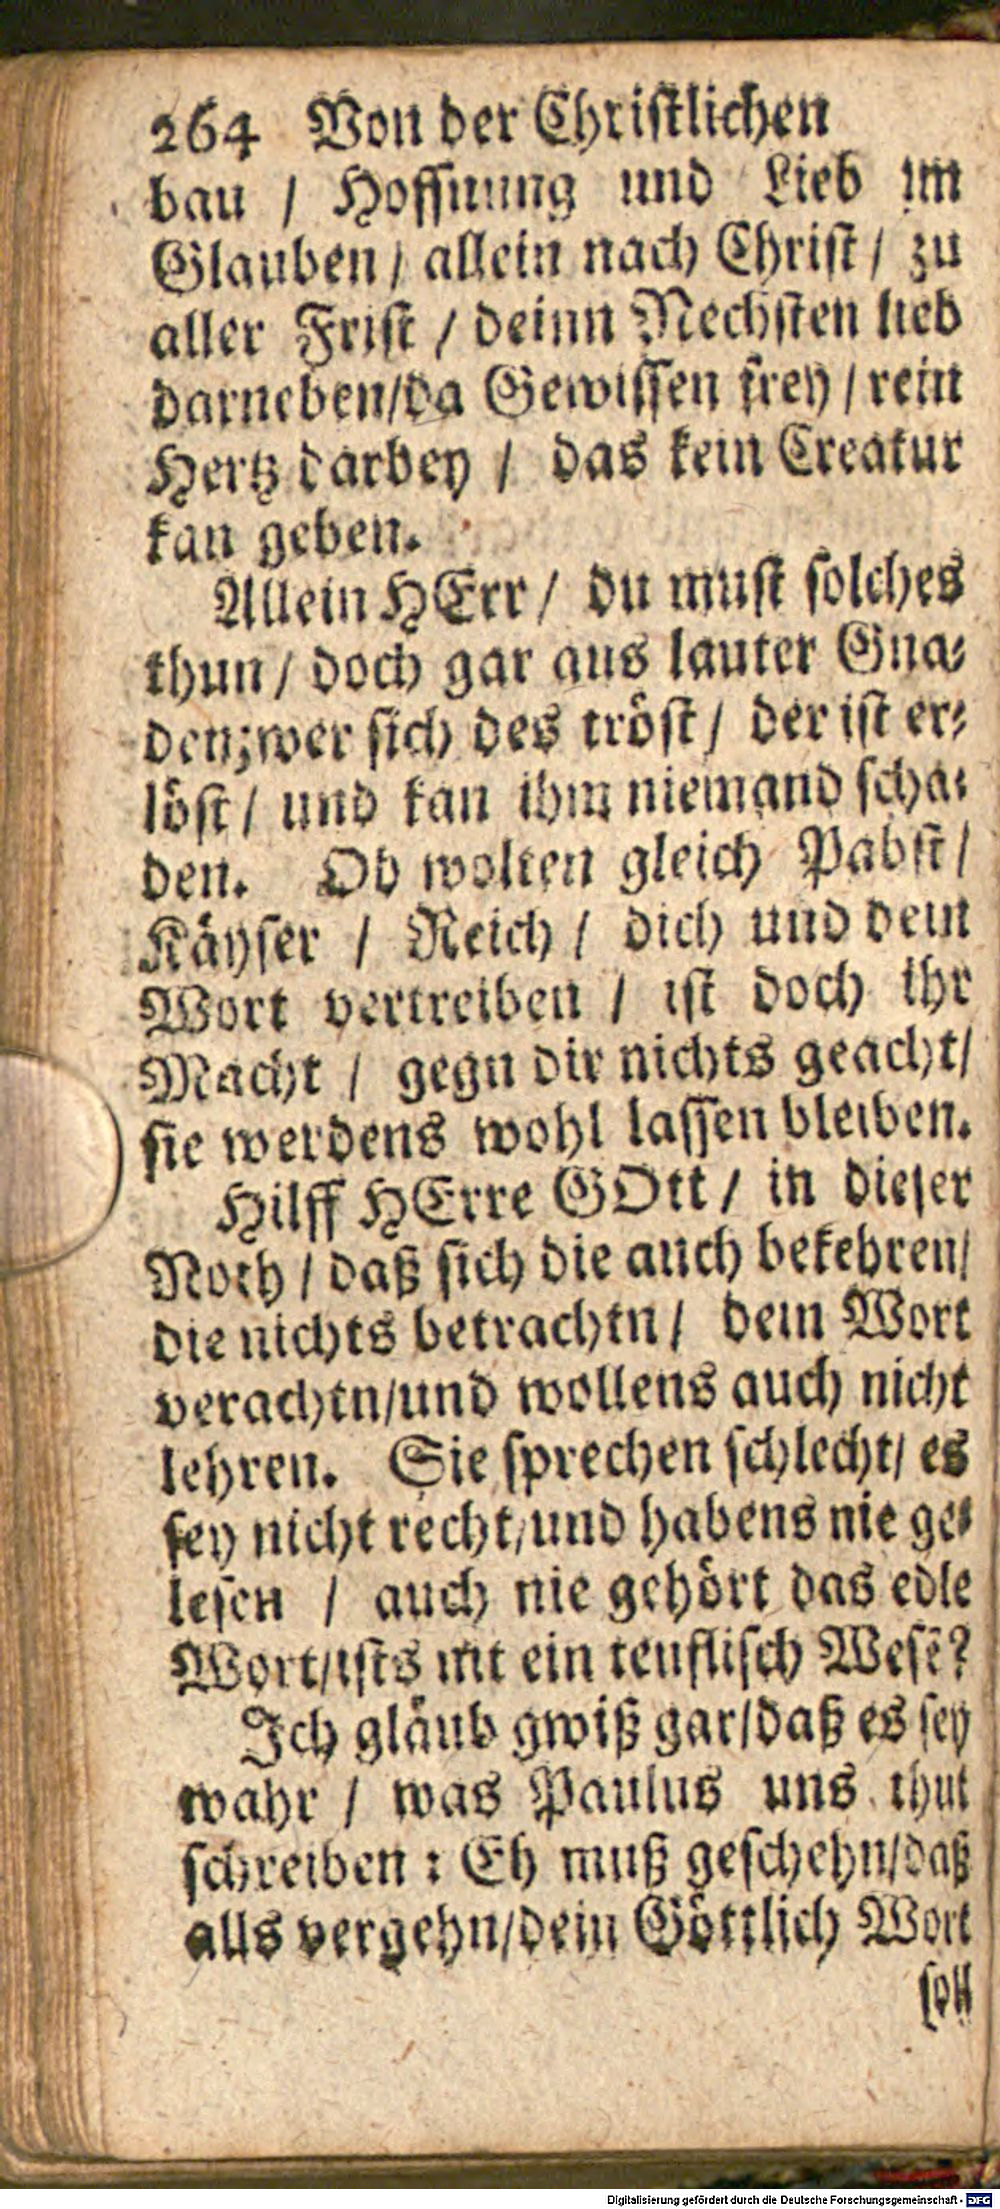 264 Von der Chriſtlichen
bau / Hoffnung und Lieb im
Glauben / allein nach Chriſt / zu
aller Friſt / deinn Nechſten lieb
darneben/da Gewiſſen frey / rein
Hertz darbey / das kein Creatur
kan geben.
Allein HErr / du muſt ſolches
thun / doch gar aus lauter Gna⸗
den; wer ſich des tröſt / der iſt er⸗
löſt / und kan ihm niemand ſcha⸗
den. Ob wolten gleich Pabſt /
Käyſer / Reich / dich und dein
Wort vertreiben / iſt doch ihr
Macht / gegn dir nichts geacht/
ſie werdens wohl laſſen bleiben.
Hilff HErre GOtt / in dieſer
Noth / daß ſich die auch bekehren/
die nichts betrachtn / dein Wort
verachtn/und wollens auch nicht
lehren. Sie ſprechen ſchlecht/ es
ſey nicht recht/und habens nie ge⸗
leſen / auch nie gehört das edle
Wort/iſts nit ein teufliſch Weſē?
Ich gläub gwiß gar/daß es ſey
wahr / was Paulus uns thut
ſchreiben : Eh muß geſchehn/daß
alls vergehn/dein Göttlich Wort
ſoll
Digitalisierung gefördert durch die Deutsche Forschungsgemeinschaft - DFG